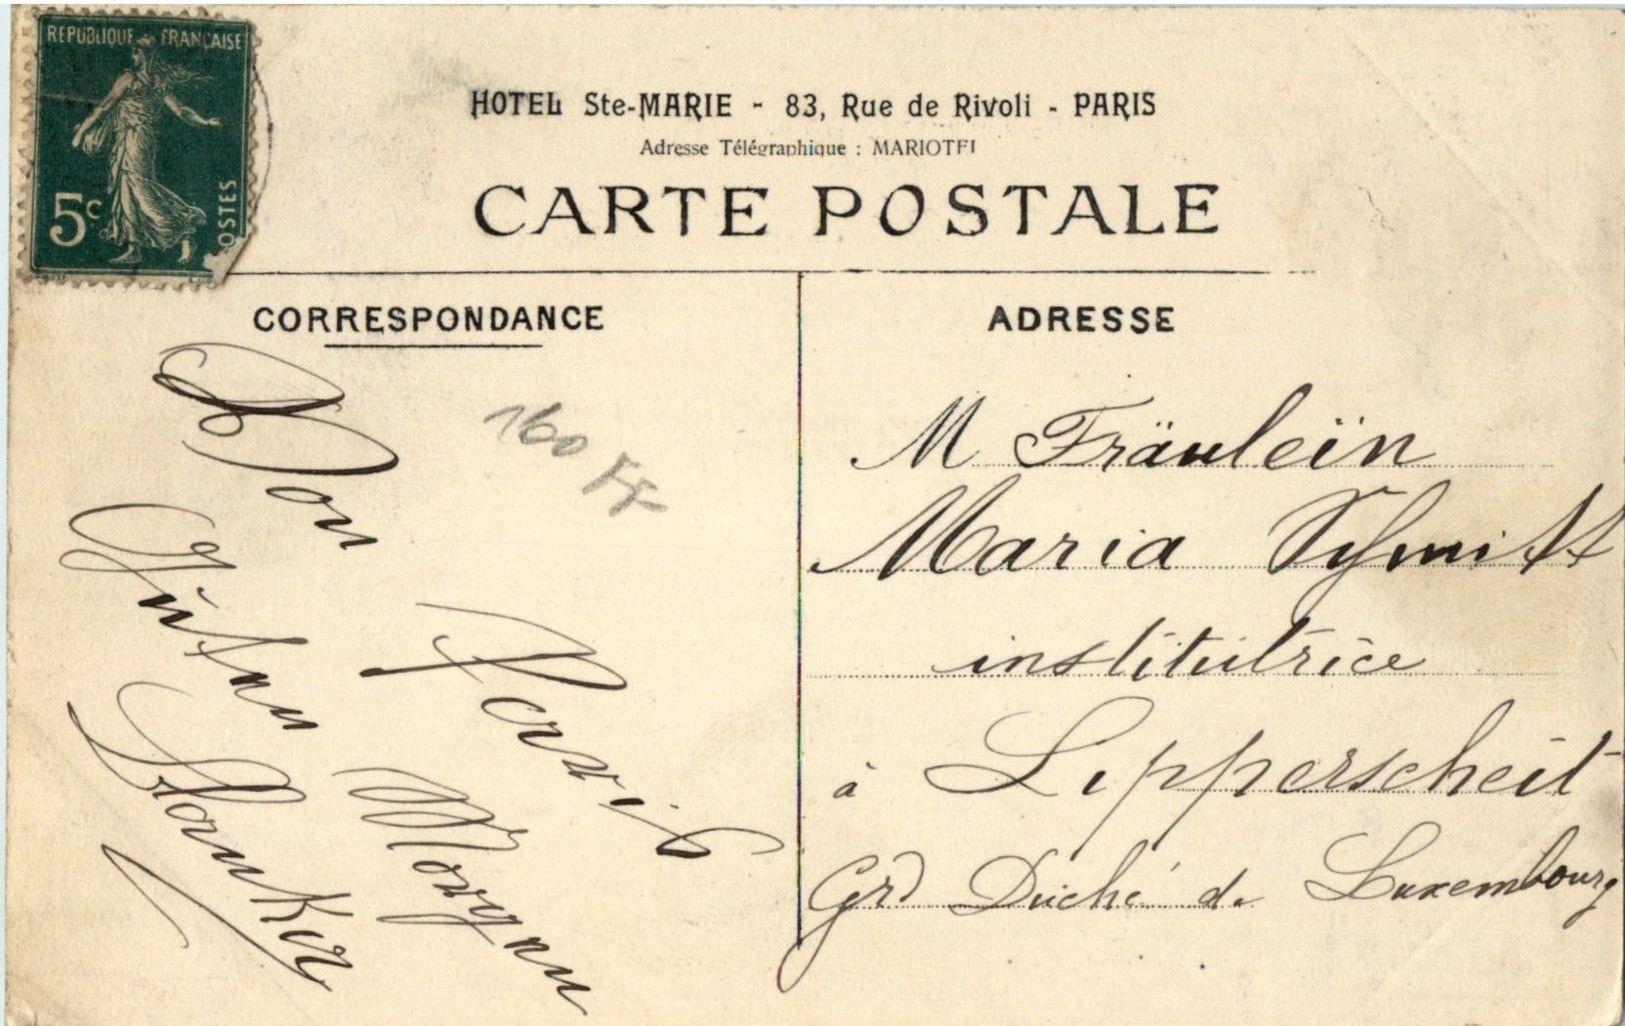 REPUBLIQUE FRANÇAISE
5c
POSTES
HOTEL Ste-MARIE - 83, Rue de Rivoli - PARIS
Adresse Télégraphique : MARIOTEL
CARTE POSTALE
CORRESPONDANCE
160 Fr
Von Paris
Guten Morgen
ADRESSE
M Fräulein
Maria Schmitt
institutrice
à Lipperscheid
Grd Duché de Luxembourg